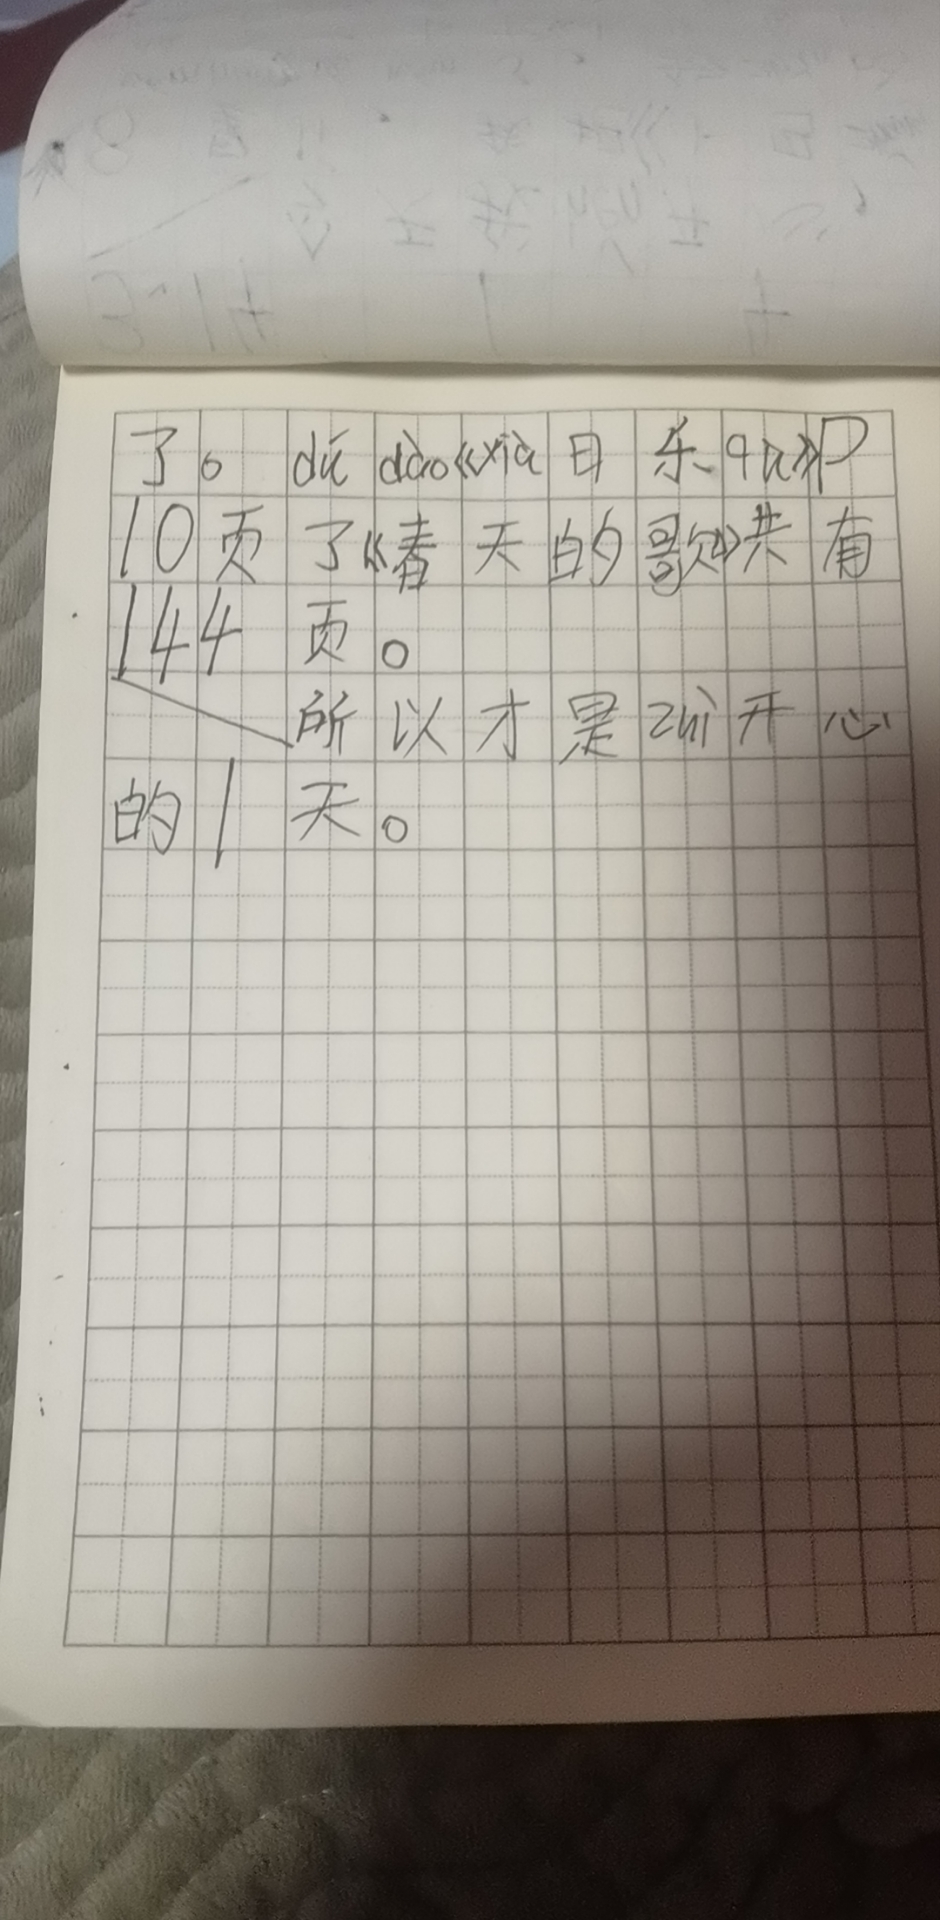 了。dú dào《xià日乐qu》P
10页了《春天的歌》共有
144页。
所以才是zuì开心
的1天。